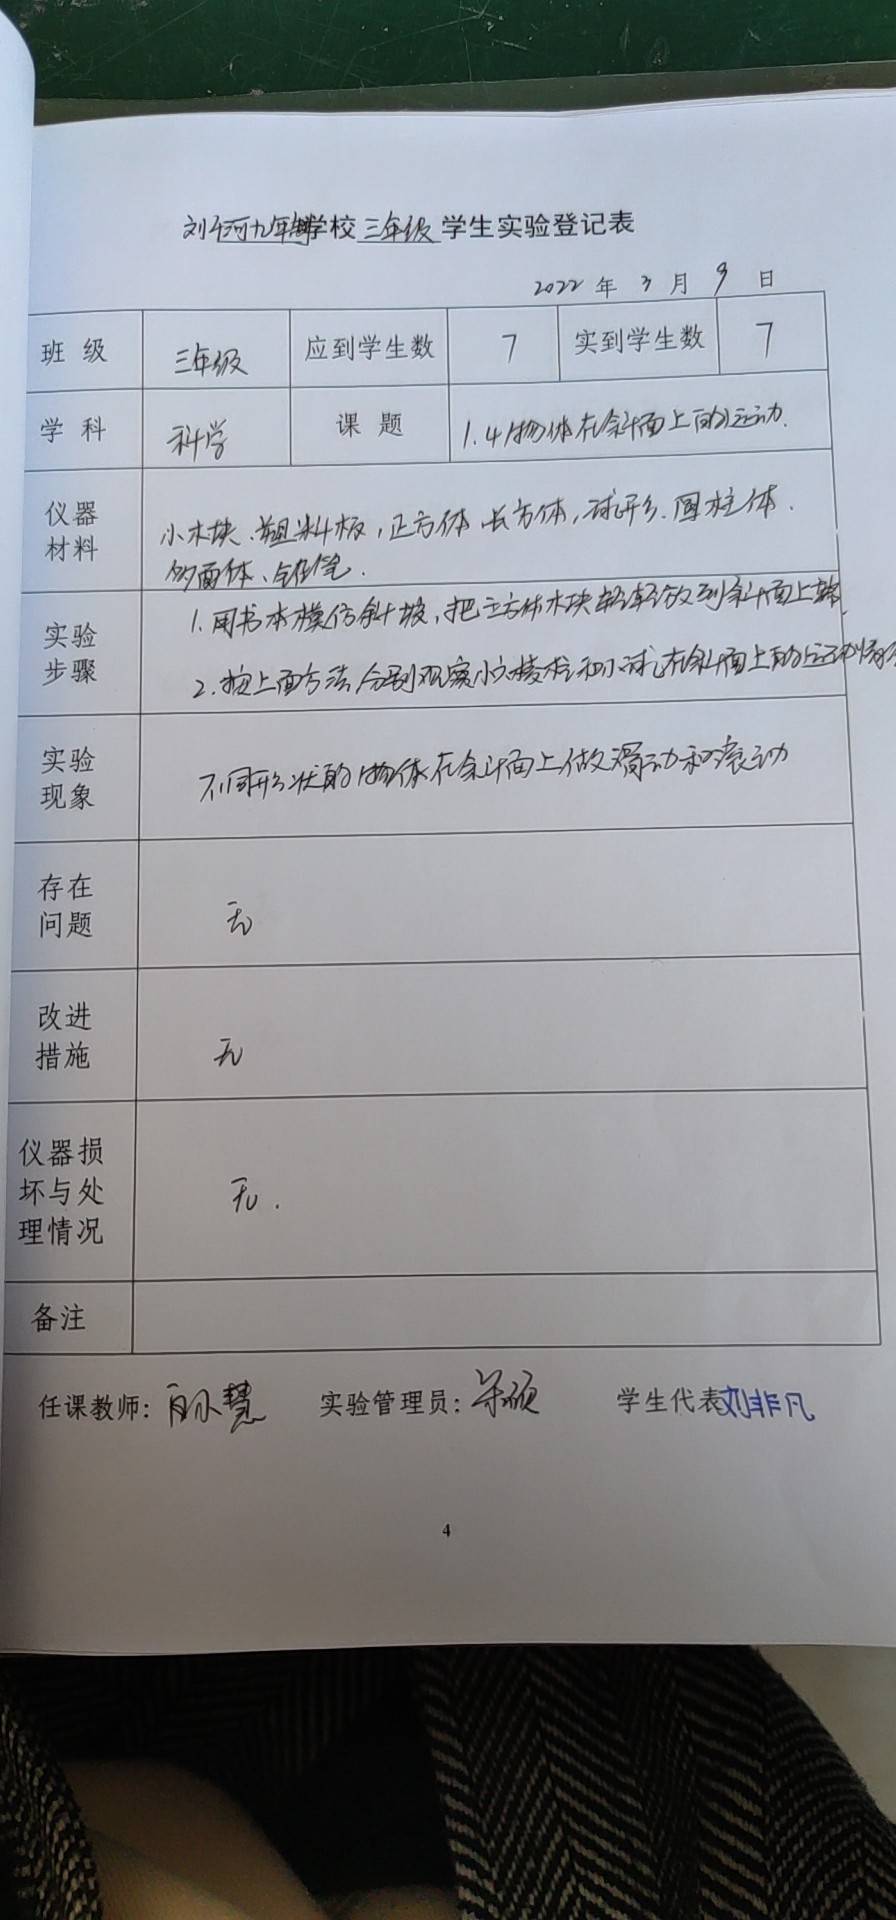 刘干河九年制学校三年级学生实验登记表
2022年3月9日
班级 三年级 应到学生数 7 实到学生数 7
学科 科学 课题 1.4物体在斜面上的运动.
仪器材料 小木块、塑料板,正方体 长方体,球形、圆柱体.
多面体、铅笔.
实验步骤 1.用书本模仿斜坡,把立方体木块轻轻放到斜面上端,
2.按上面方法分别观察小六棱柱和小球在斜面上的运动情况
实验现象 不同形状的物体在斜面上做滑动和滚动
存在问题 无
改进措施 无
仪器损坏与处理情况 无.
备注
任课教师: 慧 实验管理员: 硕 学生代表刘非凡
4